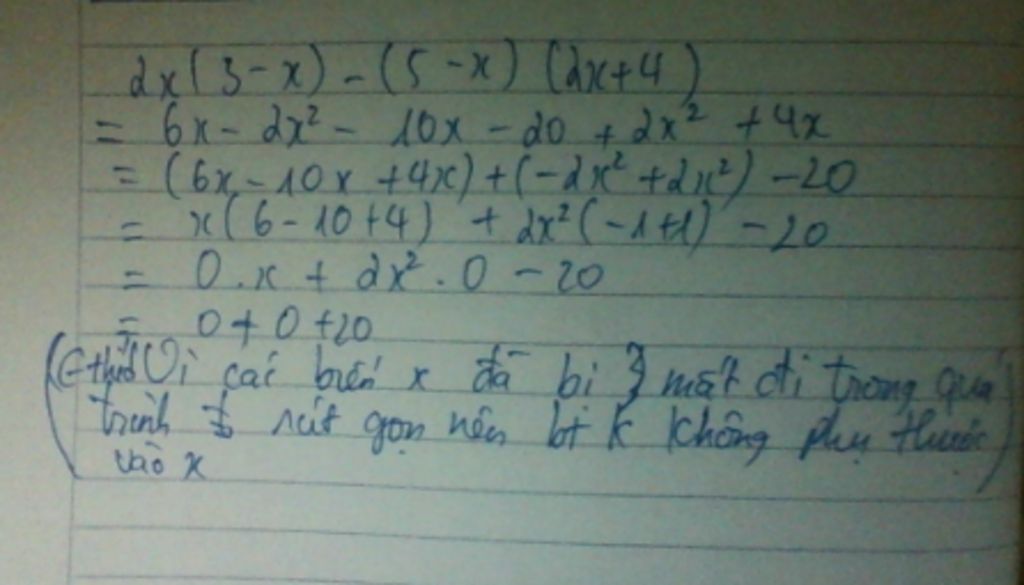 2x(3-x)-(5-x)(2x+4)
= 6x - 2x² - 10x - 20 + 2x² + 4x
= (6x - 10x + 4x) + (-2x² + 2x²) - 20
= x(6 - 10 + 4) + 2x²(-1+1) - 20
= 0.x + 2x².0 - 20
= 0 + 0 + 20
Vì các biến x đã bị mất đi trong quá
trình rút gọn nên bt k không phụ thuộc
vào x